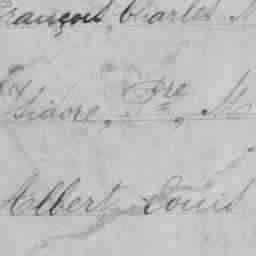 François Charles M
Isidore, Pre, M
Albert Louis